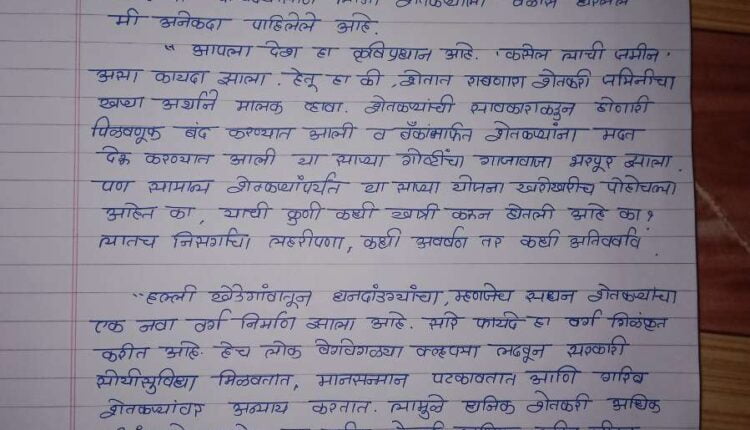 मी अनेकदा पाहिलेले आहे.
" आपला देश हा कृषिप्रधान आहे. 'कसेल त्याची जमीन'
असा कायदा झाला. हेतू हा की, शेतात राबणारा शेतकरी जमिनीचा
खऱ्या अर्थाने मालक व्हावा. शेतकऱ्यांची सावकाराकडून होणारी
पिळवणूक बंद करण्यात आली व बँकांमार्फत शेतकऱ्यांना मदत
देऊ करण्यात आली या साऱ्या गोष्टींचा गाजावाजा भरपूर झाला.
पण सामान्य शेतकऱ्यांपर्यंत या साऱ्या योजना खरोखरीच पोहोचल्या
आहेत का, याची कुणी कधी खात्री करून घेतली आहे का?
त्यातच निसर्गाचा लहरीपणा, कधी अवर्षण तर कधी अतिवर्षाव.
"हल्ली खेडेगावातून धनदांडग्यांचा, म्हणजेच सधन शेतकऱ्यांचा
एक नवा वर्ग निर्माण झाला आहे. सारे फायदे हा वर्ग गिळंकृत
करीत आहे. हेच लोक वेगवेगळ्या क्लृप्त्या लढवून सरकारी
सोयीसुविधा मिळवतात, मानसन्मान पटकावतात आणि गरिब
शेतकऱ्यांवर अन्याय करतात. त्यामुळे धनिक शेतकरी अधिक